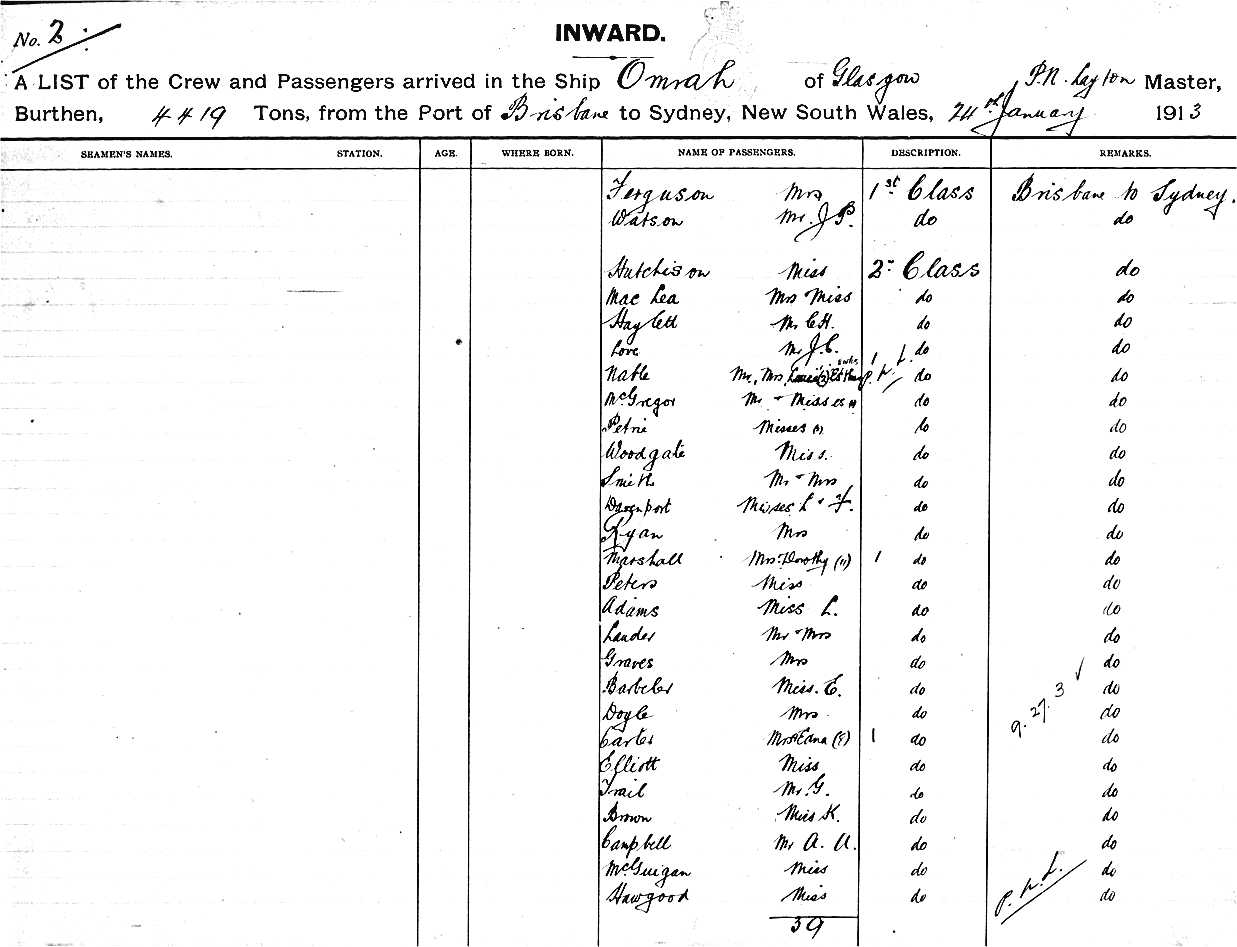 No. 2
INWARD.
A LIST of the Crew and Passengers arrived in the Ship Omrah of Glasgow P.N. Layton Master,
Burthen, 4419 Tons, from the Port of Brisbane to Sydney, New South Wales, 24th January 1913
SEAMEN'S NAMES. STATION. AGE. WHERE BORN. NAME OF PASSENGERS. DESCRIPTION. REMARKS.
Ferguson Mrs 1st Class Brisbane to Sydney.
Watson Mr. J P. do do
Hutchison Miss 2" Class do
Mac Lea Mrs Miss do do
Haylett Mr C H. do do
Love Mr J. C. do do
Nable Mr, Mrs, (2) 1 do do
McGregor Mr + Misses do do
Petrie Misses do do
Woodgate Miss. do do
Smith Mr + Mrs do do
Davenport Misses L + F. do do
Ryan Mrs do do
Marshall Mrs + Dorothy (11) 1 do do
Peters Miss do do
Adams Miss L. do do
Lander Mr + Mrs do do
Graves Mrs do do
Barbeler Miss. E. do do
Doyle Mrs do do
9. 27. 3
Carter Mrs + Edna 1 do do
Elliott Miss do do
Trail Mr G. do do
Brown Miss K. do do
Campbell Mr A. A. do do
McGuigan Miss do do
Hawgood Miss do do
39